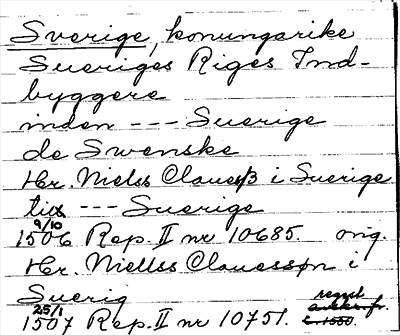 Sverige, konungarike
Sueriges Riges Ind-
byggere
inden --- Suerige
de Swenske
Hr. Nielss Clauesß i Suerige
--- Suerige
9/10
1506 Rep. II nr 10685. orig.
Hr. Niellss Clauessøn i
Suerig
25/1
1507 Rep. II nr 10751.